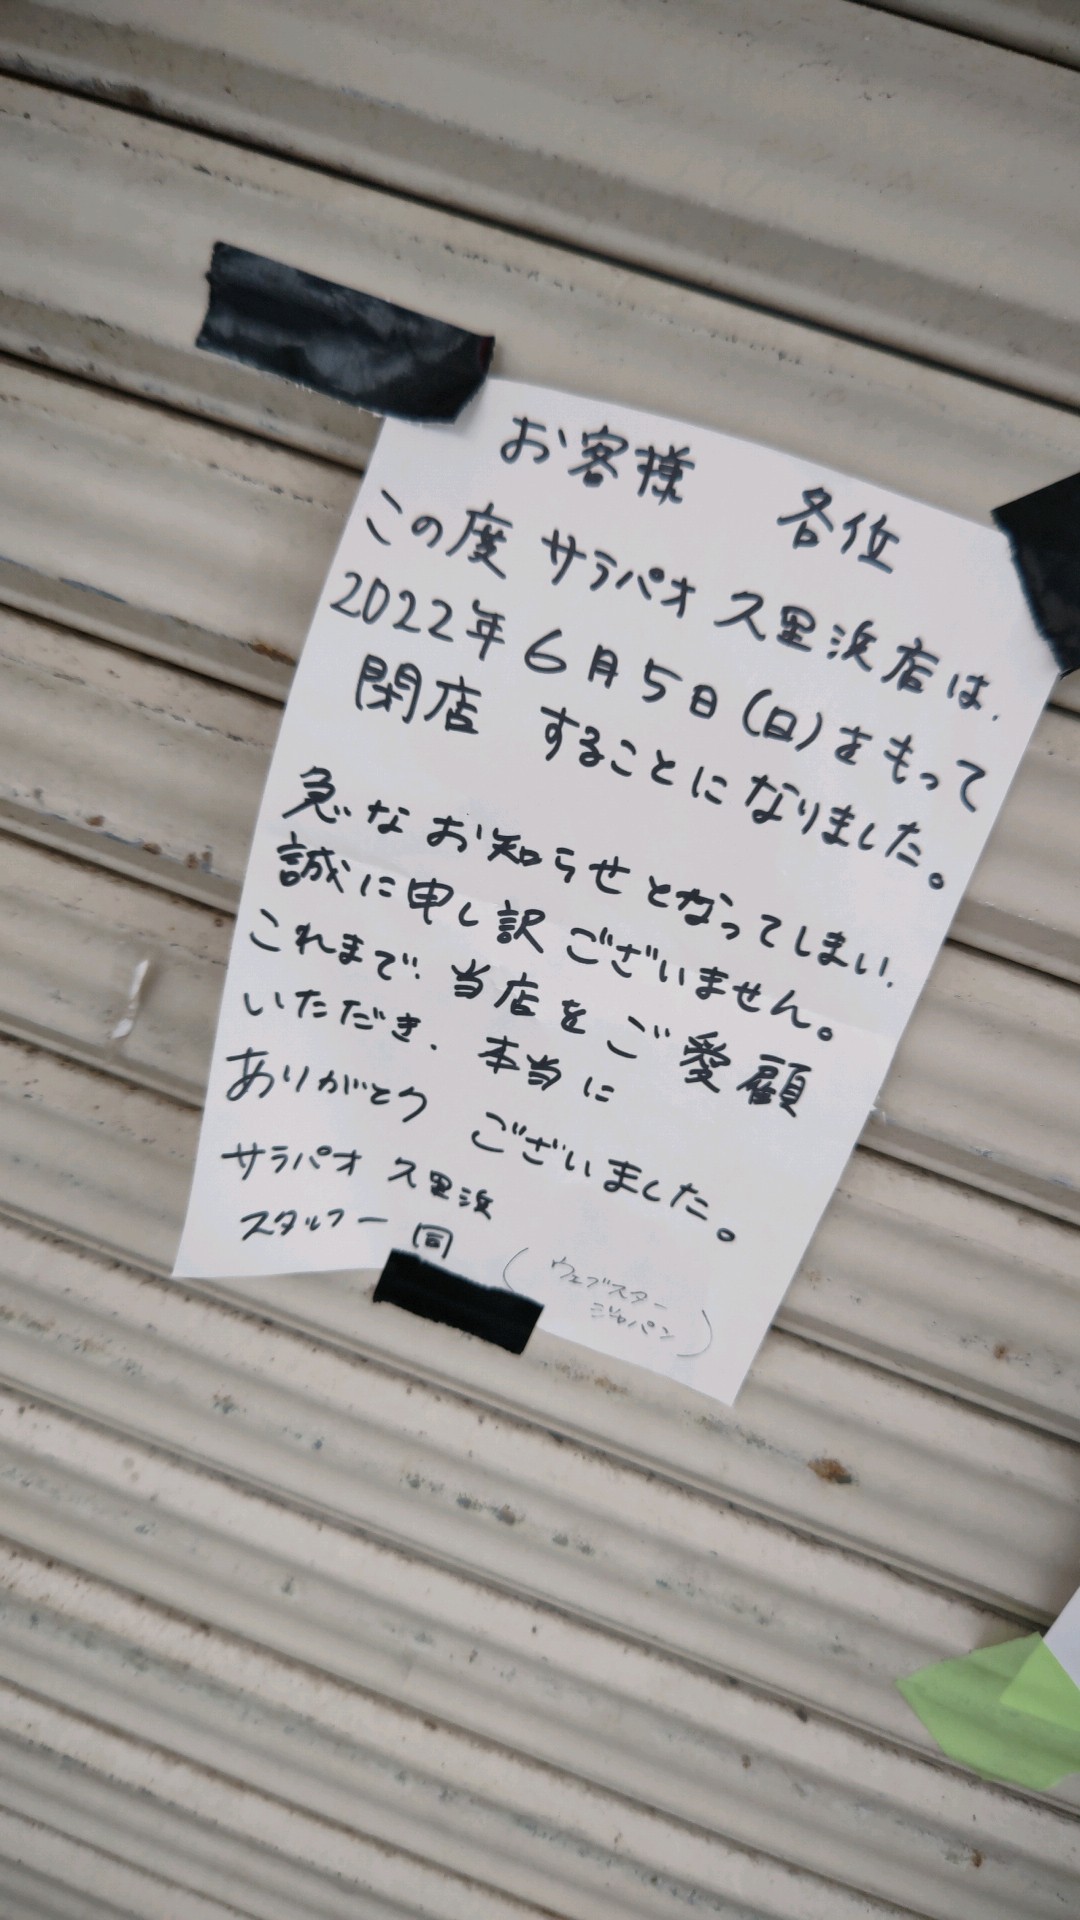 お客様 各位
この度 サラパオ 久里浜店は、
2022年 6月5日(日)をもって
閉店 することになりました。
急なお知らせとなってしまい、
誠に申し訳ございません。
これまで、当店をご愛顧
いただき、本当に
ありがとう ございました。
サラパオ 久里浜
スタッフ一同
(ウェブスター
ジャパン)